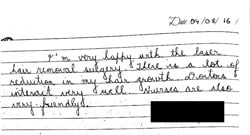 Dt: 04/08/16
I'm very happy with the laser
hair removal surgery. There is a lot of
reduction in my hair growth. Doctors
interact very well. Nurses are also
very friendly.